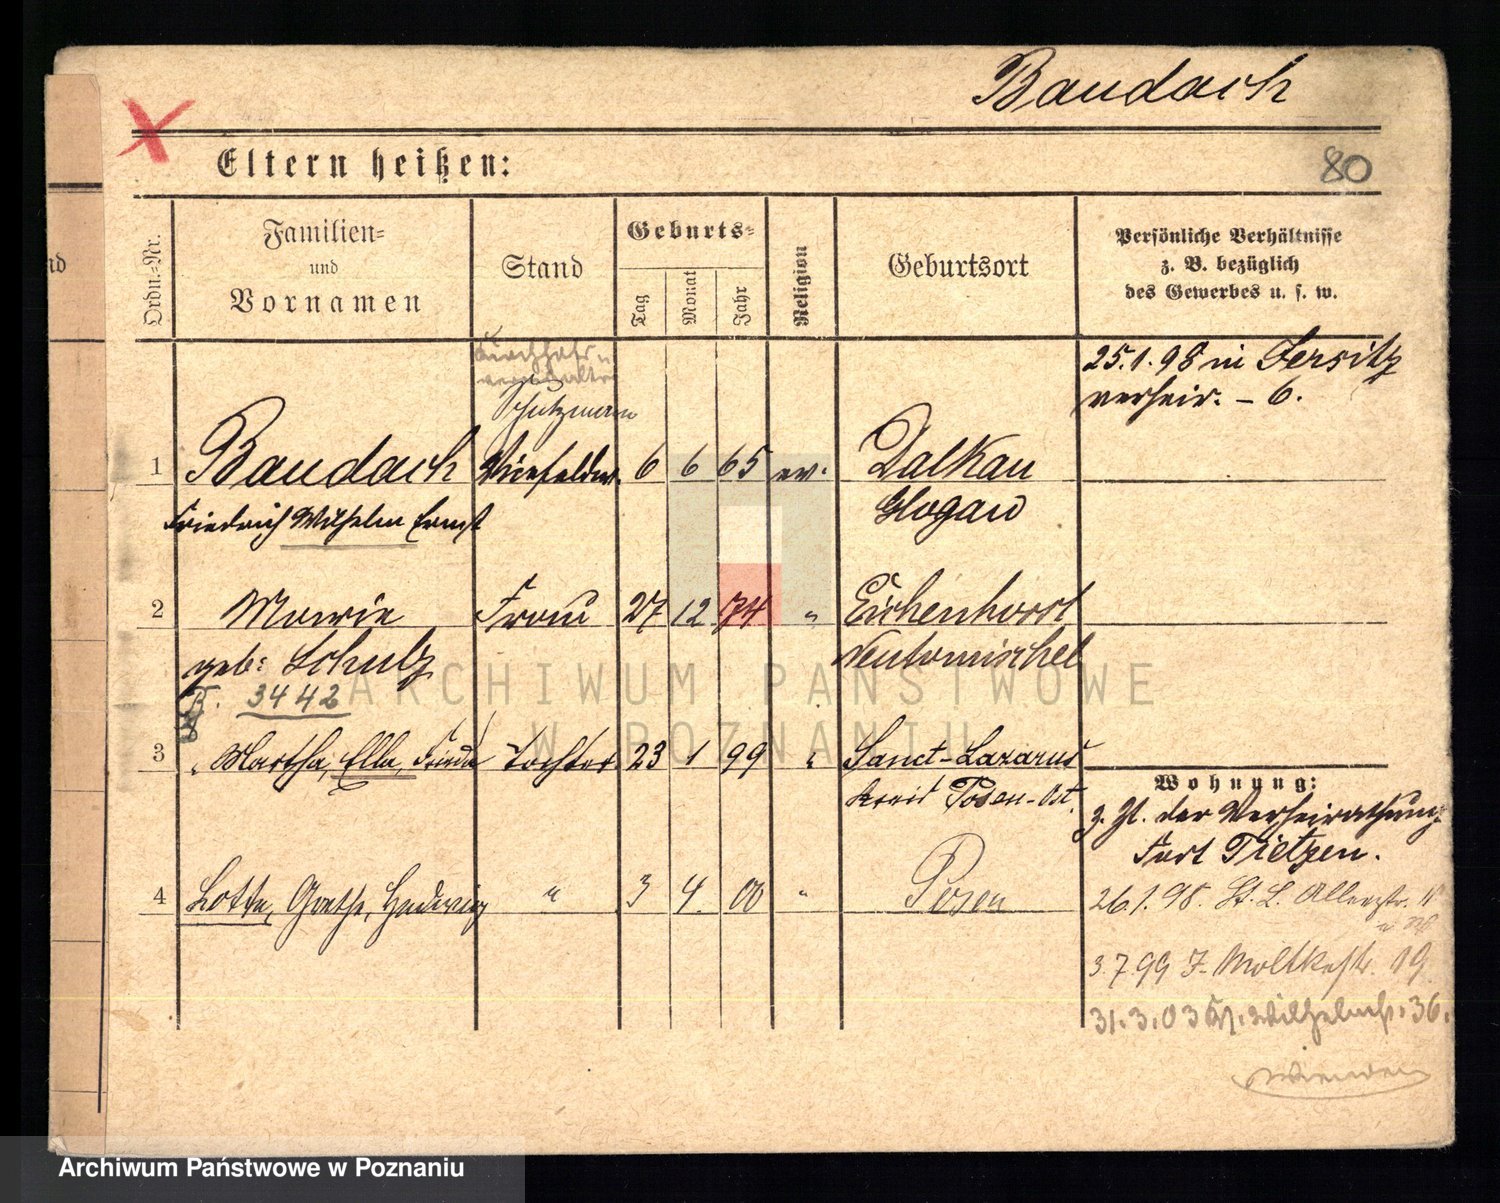 Baudach
Eltern heißen:
80
Ordn.-Nr.
Familien-
und
Vornamen
Stand
Geburts-
Tag
Monat
Jahr
Religion
Geburtsort
Persönliche Verhältnisse
z. B. bezüglich
des Gewerbes u. s. w.
25.1.98 in Jersitz
verheir. – 6.
Schutzmann
1 Baudach Vicefeldw. 6 6 65 ev. Dalkau
Friedrich Wilhelm Ernst Glogau
2 Marie Frau 27 12 74 " Eichenhorst
geb: Schulz Neutomischel
3442
3 Martha, Ella, Frieda Tochter 23 1 99 " Sanct-Lazarus
Kreis Posen-Ost.
Wohnung:
z. Zt. der Verheirathung:
Fort Tietzen.
4 Lotte, Grethe, Hedwig " 3 4. 00 " Posen
26.1.98. St. L.
3.7.99 J. Moltkestr. 19
31.3.03 Wilhelmstr. 36.
ARCHIWUM PAŃSTWOWE
W POZNANIU
Archiwum Państwowe w Poznaniu